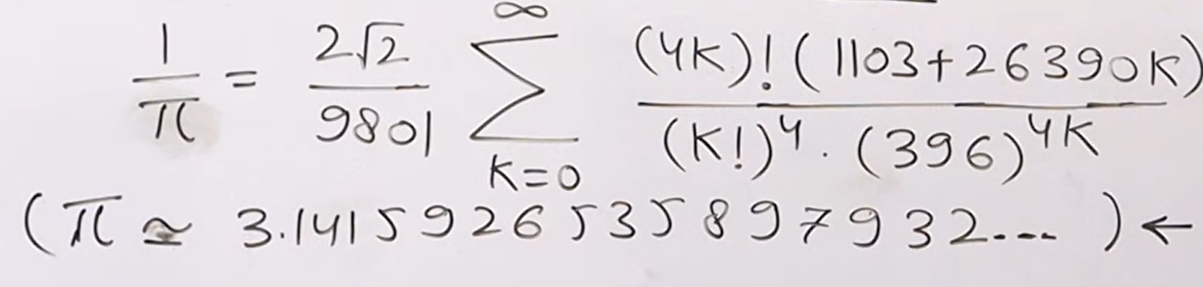 1/π = 2√2/9801 ∑_{K=0}^{∞} (4K)!(1103+26390K)/(K!)^4 · (396)^{4K}
(π ≃ 3.141592653589 7932... ) ←